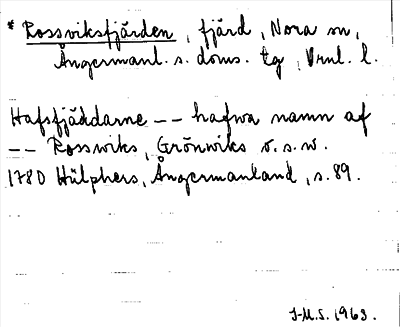 * Rossviksfjärden, fjärd, Nora sn,
Ångermanl. s. doms. tg, Vrnl. l.
Hafsfjäddarne -- hafwa namn af
-- Rosswiks, Grönwiks o.s.w.
1780 Hülphers, Ångermanland, s. 89.
I-M.S. 1963.